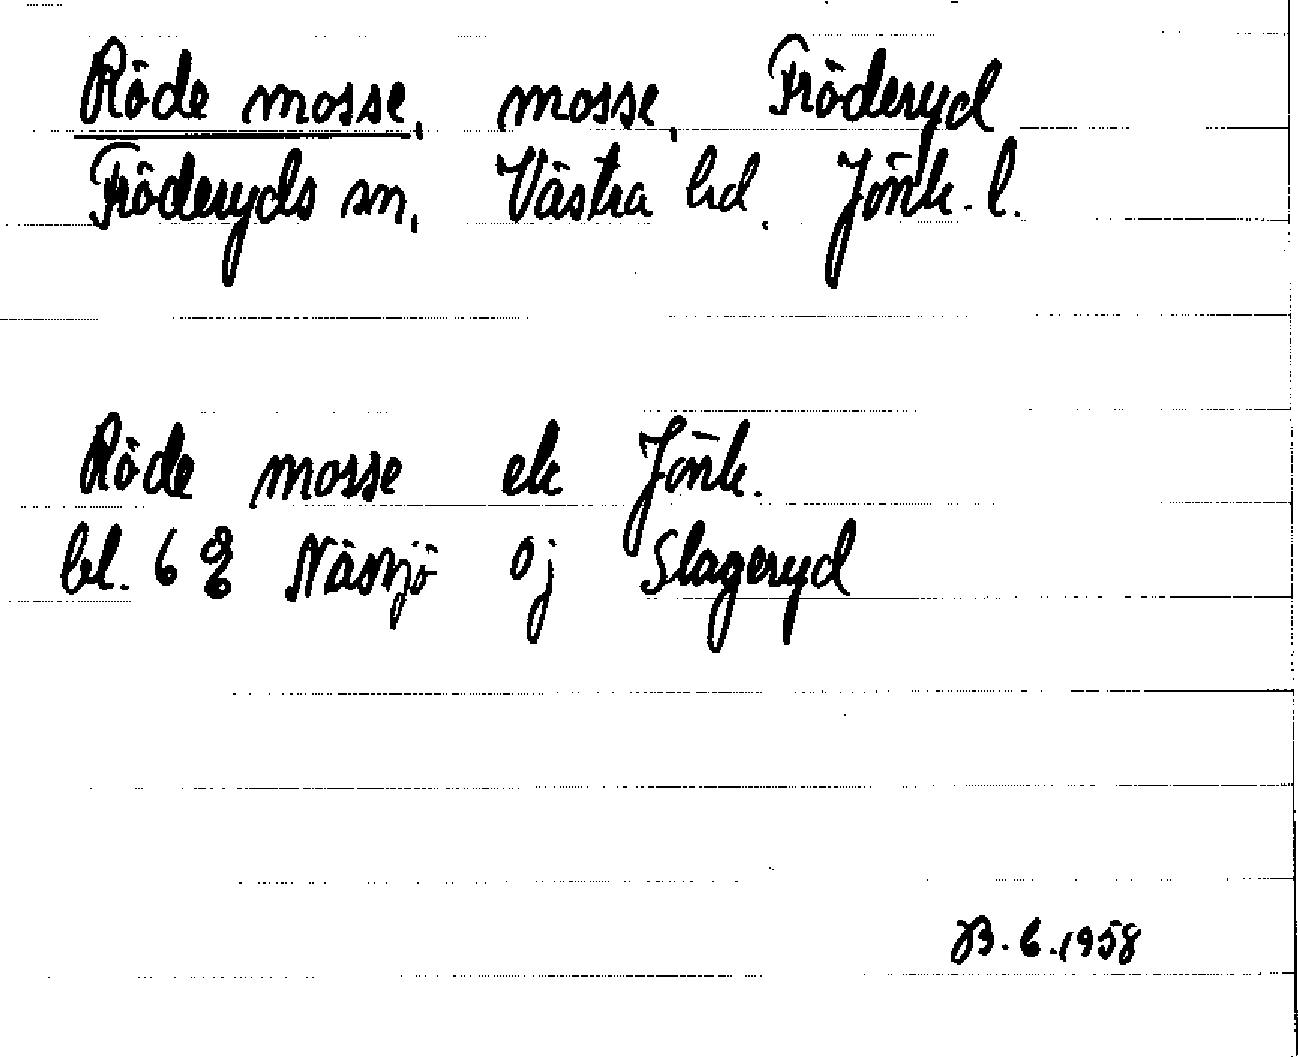 Röde mosse, mosse, Fröderyd
Fröderyds sn, Västra hd. Jönk. l.
Röde mosse ek Jönk.
bl. 6 8 Nässjö öj Slageryd
B. C. 1958